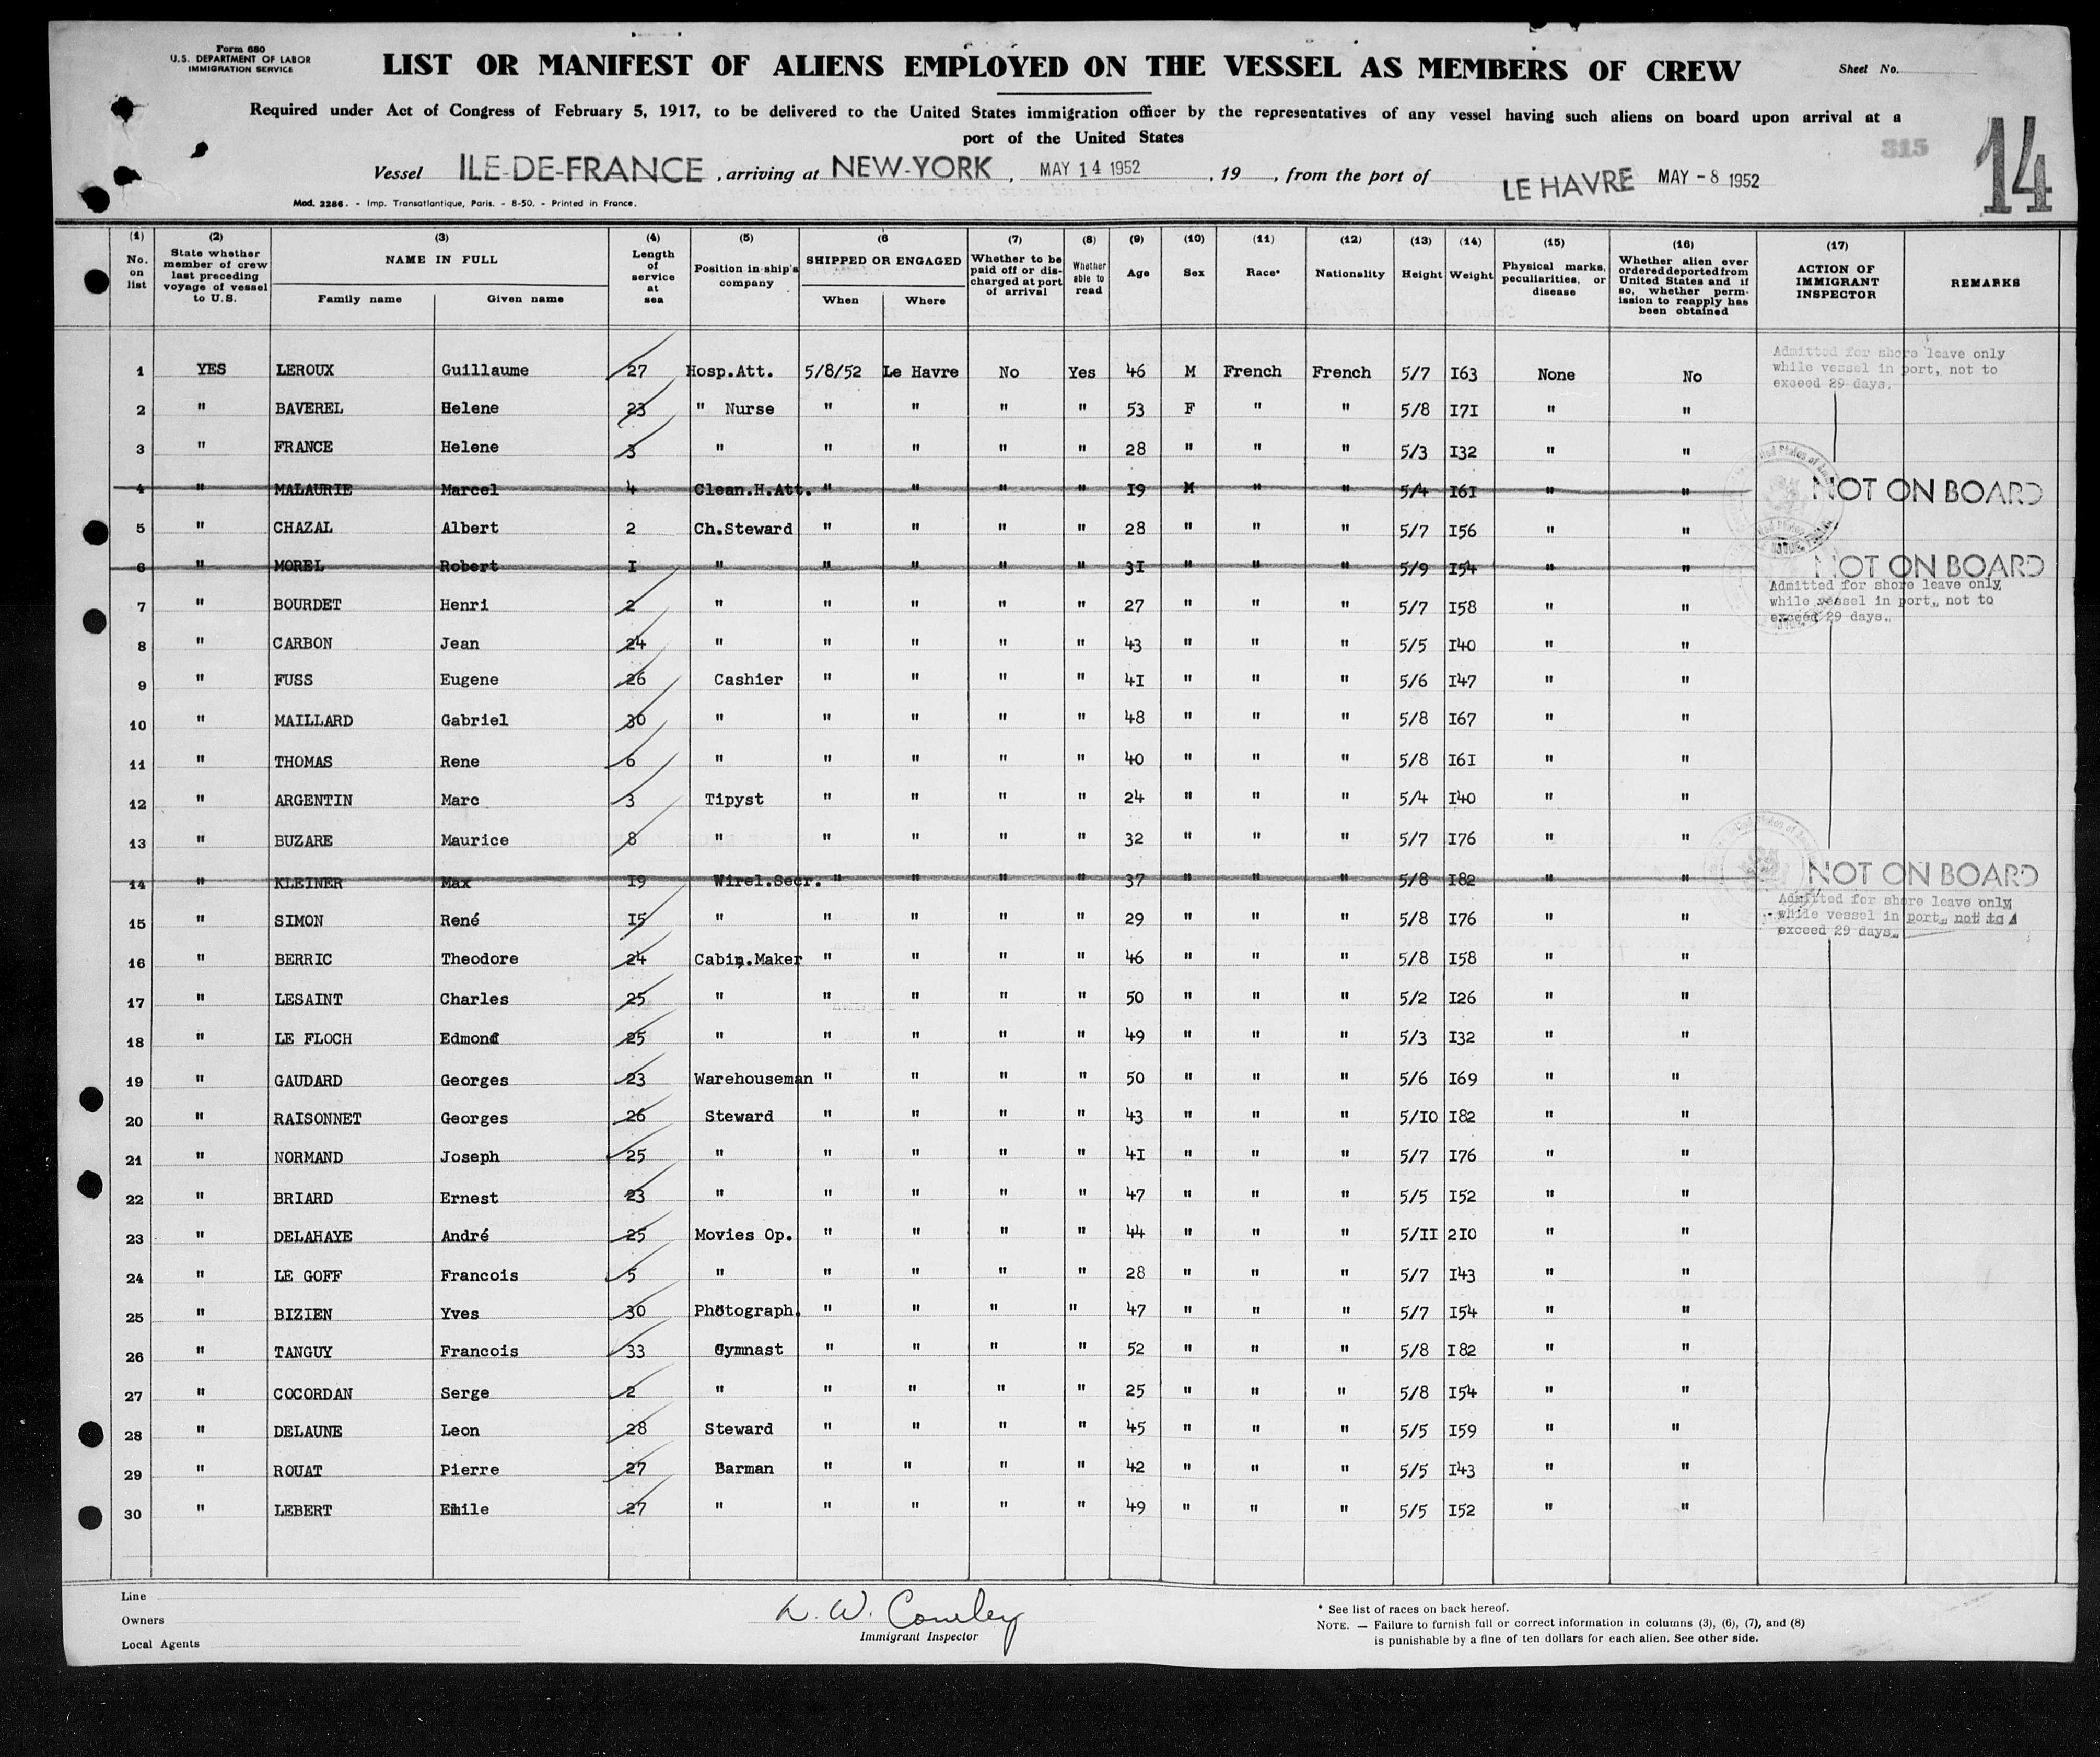 Form 680
U.S. DEPARTMENT OF LABOR
IMMIGRATION SERVICE
LIST OR MANIFEST OF ALIENS EMPLOYED ON THE VESSEL AS MEMBERS OF CREW
Sheet No.
Required under Act of Congress of February 5, 1917, to be delivered to the United States immigration officer by the representatives of any vessel having such aliens on board upon arrival at a
port of the United States
315
14
Vessel ILE-DE-FRANCE, arriving at NEW-YORK, MAY 14 1952, 19, from the port of LE HAVRE MAY -8 1952
Mod. 2286. - Imp. Transatlantique, Paris. - 8-50. - Printed in France.
(1) No. on list
(2) State whether member of crew last preceding voyage of vessel to U.S.
(3) NAME IN FULL Family name Given name
(4) Length of service at sea
(5) Position in ship's company
(6 SHIPPED OR ENGAGED When Where
(7) Whether to be paid off or discharged at port of arrival
(8) Whether able to read
(9) Age
(10) Sex
(11) Race*
(12) Nationality
(13) Height
(14) Weight
(15) Physical marks, peculiarities, or disease
(16) Whether alien ever ordered deported from United States and if so, whether permission to reapply has been obtained
(17) ACTION OF IMMIGRANT INSPECTOR
REMARKS
1 YES LEROUX Guillaume 27 Hosp.Att. 5/8/52 Le Havre No Yes 46 M French French 5/7 I63 None No Admitted for shore leave only while vessel in port, not to exceed 29 days.
2 " BAVEREL Helene 23 " Nurse " " " " 53 F " " 5/8 I7I " "
3 " FRANCE Helene 3 " " " " " 28 " " " 5/3 I32 " "
4 " MALAURIE Marcel 4 Clean.H.Att. " " " " I9 M " " 5/4 I6I " " NOT ON BOARD
5 " CHAZAL Albert 2 Ch.Steward " " " " 28 " " " 5/7 I56 " "
6 " MOREL Robert I " " " " " 3I " " " 5/9 I54 " " NOT ON BOARD
7 " BOURDET Henri 2 " " " " " 27 " " " 5/7 I58 " " Admitted for shore leave only while vessel in port, not to exceed 29 days.
8 " CARBON Jean 24 " " " " " 43 " " " 5/5 I40 " "
9 " FUSS Eugene 26 Cashier " " " " 4I " " " 5/6 I47 " "
10 " MAILLARD Gabriel 30 " " " " " 48 " " " 5/8 I67 " "
11 " THOMAS Rene 6 " " " " " 40 " " " 5/8 I6I " "
12 " ARGENTIN Marc 3 Tipyst " " " " 24 " " " 5/4 I40 " "
13 " BUZARE Maurice 8 " " " " " 32 " " " 5/7 I76 " "
14 " KLEINER Max I9 Wirel.Secr. " " " " 37 " " " 5/8 I82 " " NOT ON BOARD
15 " SIMON René I5 " " " " " 29 " " " 5/8 I76 " " Admitted for shore leave only while vessel in port, not to exceed 29 days.
16 " BERRIC Theodore 24 Cabin.Maker " " " " 46 " " " 5/8 I58 " "
17 " LESAINT Charles 25 " " " " " 50 " " " 5/2 I26 " "
18 " LE FLOCH Edmond 25 " " " " " 49 " " " 5/3 I32 " "
19 " GAUDARD Georges 23 Warehouseman " " " " 50 " " " 5/6 I69 " "
20 " RAISONNET Georges 26 Steward " " " " 43 " " " 5/I0 I82 " "
21 " NORMAND Joseph 25 " " " " " 4I " " " 5/7 I76 " "
22 " BRIARD Ernest 23 " " " " " 47 " " " 5/5 I52 " "
23 " DELAHAYE André 25 Movies Op. " " " " 44 " " " 5/II 2I0 " "
24 " LE GOFF Francois 5 " " " " " 28 " " " 5/7 I43 " "
25 " BIZIEN Yves 30 Photograph. " " " " 47 " " " 5/7 I54 " "
26 " TANGUY Francois 33 Gymnast " " " " 52 " " " 5/8 I82 " "
27 " COCORDAN Serge 2 " " " " " 25 " " " 5/8 I54 " "
28 " DELAUNE Leon 28 Steward " " " " 45 " " " 5/5 I59 " "
29 " ROUAT Pierre 27 Barman " " " " 42 " " " 5/5 I43 " "
30 " LEBERT Emile 27 " " " " " 49 " " " 5/5 I52 " "
Line
Owners
Local Agents
Immigrant Inspector
* See list of races on back hereof.
NOTE. — Failure to furnish full or correct information in columns (3), (6), (7), and (8)
is punishable by a fine of ten dollars for each alien. See other side.